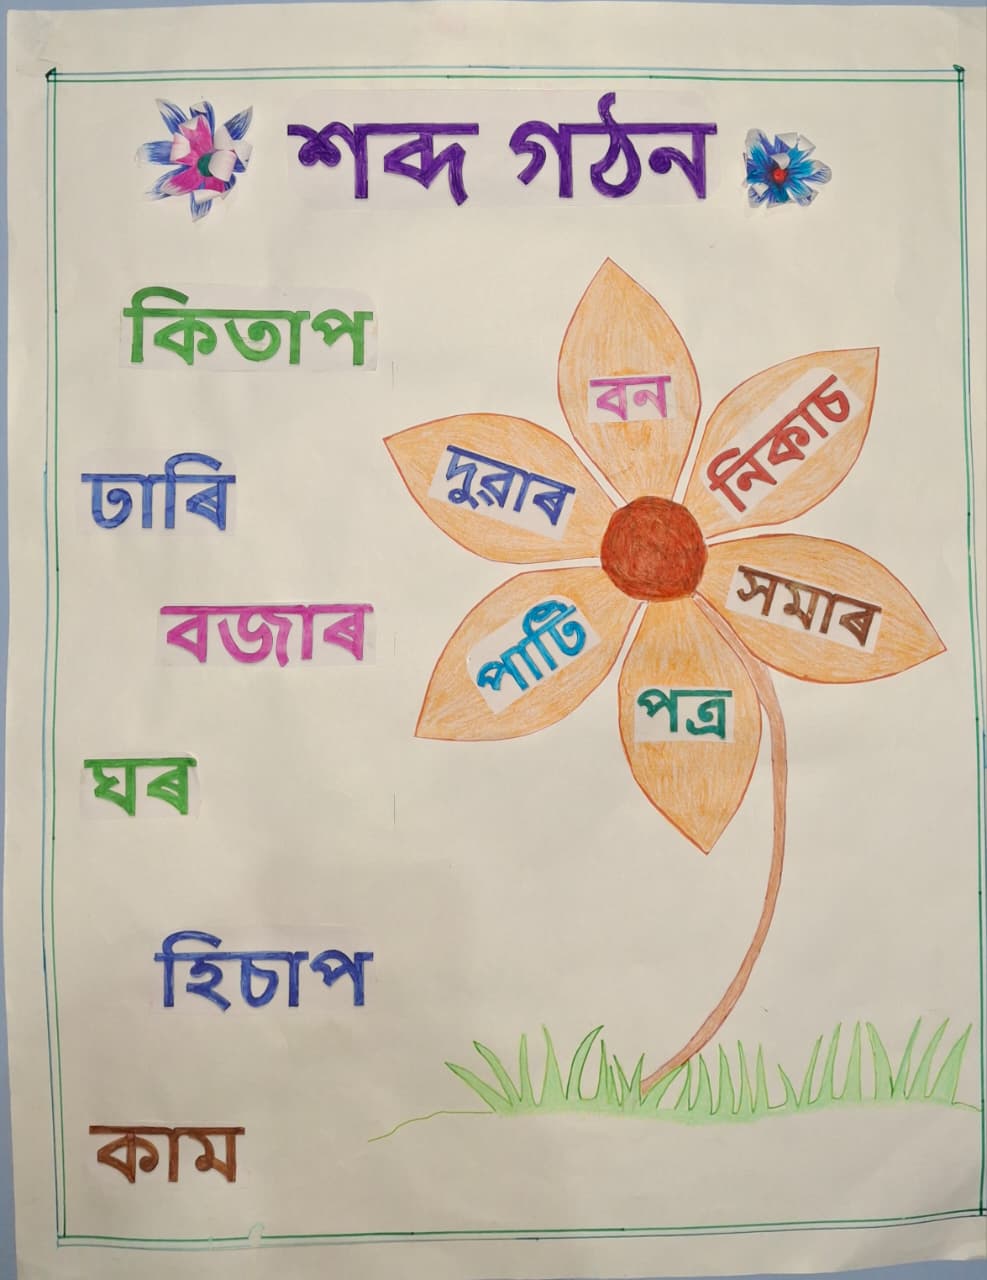 শব্দ গঠন
কিতাপ
ঢাৰি
বজাৰ
ঘৰ
হিচাপ
কাম
বন
নিকাচ
দুৱাৰ
সমাৰ
পাটি
পত্ৰ